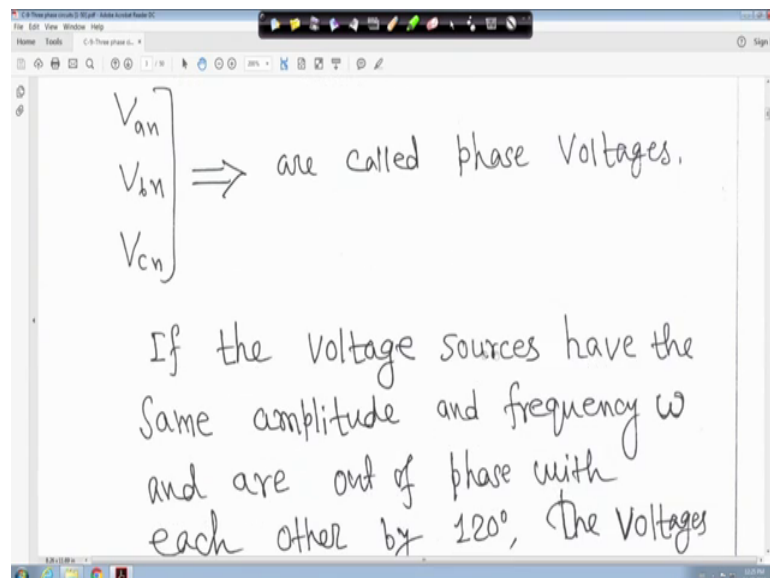 C-9-Three phase circuits [1-30].pdf - Adobe Acrobat Reader DC
File Edit View Window Help
Home Tools C-9-Three phase ci... ×
Sign
Van
Vbn
Vcn
⇒ are called phase voltages.
If the voltage sources have the
same amplitude and frequency ω
and are out of phase with
each other by 120°, the voltages